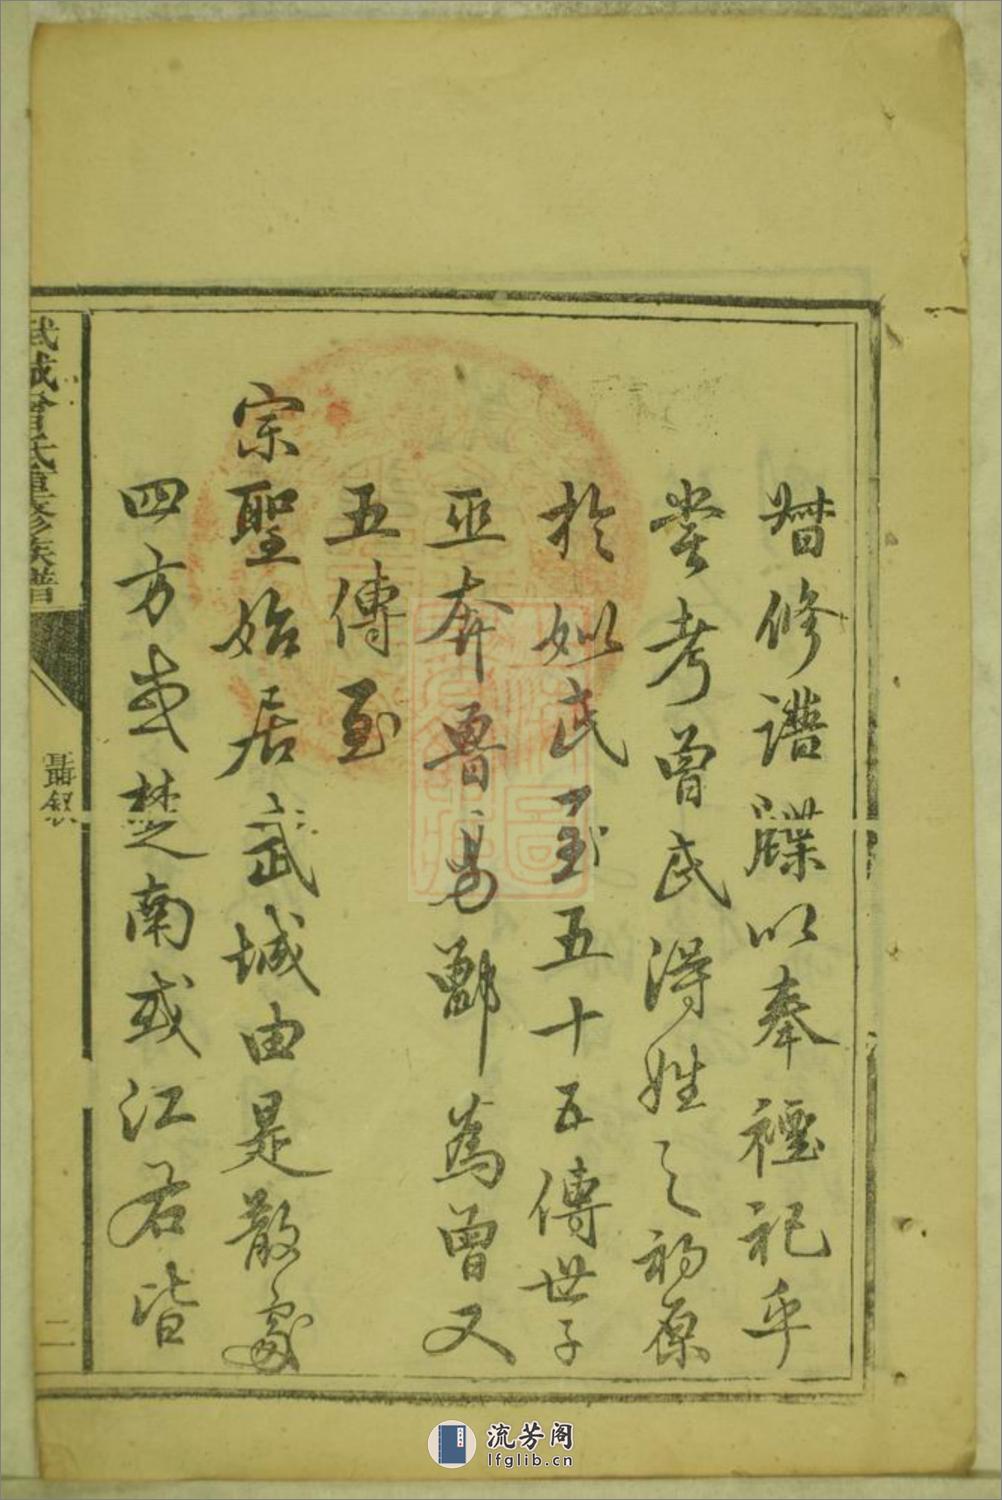 暜修譜牒以奉禋祀乎
嘗考曾氏得姓之初原
於姒氏至五十五傳世子
巫奔魯易鄫為曾又
五傳至
宗聖始居武城由是散處
四方或楚南或江右皆
武城曾氏重修族譜
聶叙
二
流芳阁
lfglib.cn